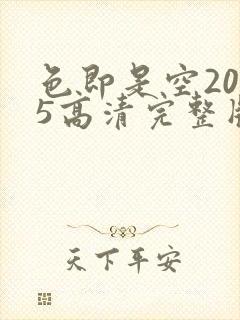 色即是空20
5高清完整
天下平安